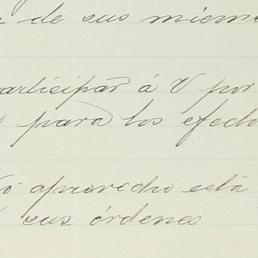 de sus miem
articipar á V por
para los efecto
ó aprovecho está
sus órdenes